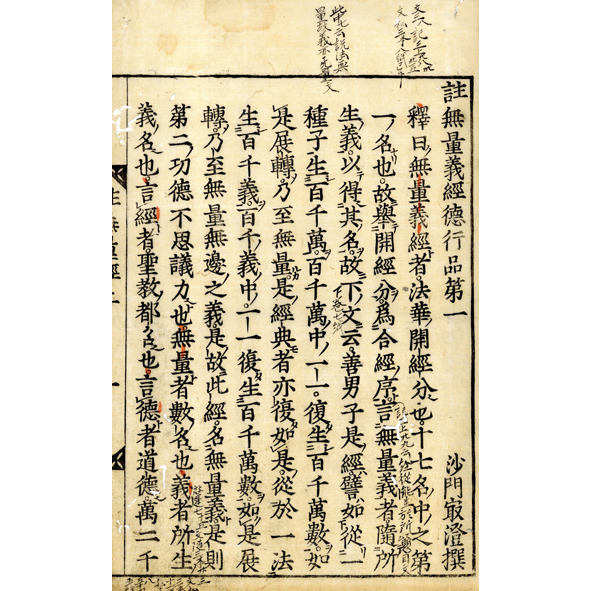 註無量義經德行品第一 沙門㝡澄撰
釋曰無量義經者法華開經分也十七名中之第
一名也故舉開經分為合經序言無量義者隨所
生義以得其名故下文云善男子是經譬如從一
種子生百千萬百千萬中一一復生百千萬數如
是展轉乃至無量是經典者亦復如是從於一法
生百千義百千義中一一復生百千萬數如是展
轉乃至無量無邊之義是故此經名無量義是則
第二功德不思議力也無量者數名也義者所生
義名也言經者聖教都名也言德者道德萬二千